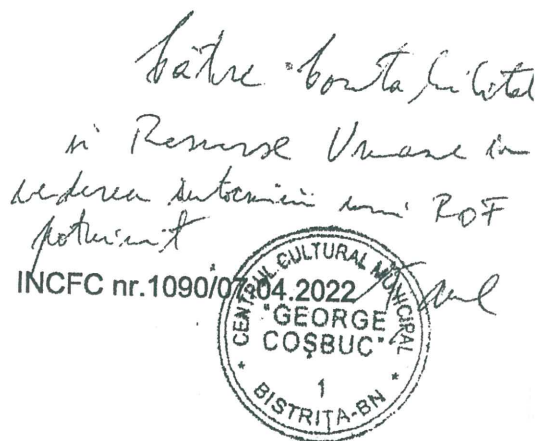 Către Contabilitate
și Resurse Umane în
vederea întocmirii unui ROF
potrivit
INCFC nr.1090/07.04.2022
CENTRUL CULTURAL MUNICIPAL
"GEORGE
COȘBUC"
1
* BISTRIȚA-BN *